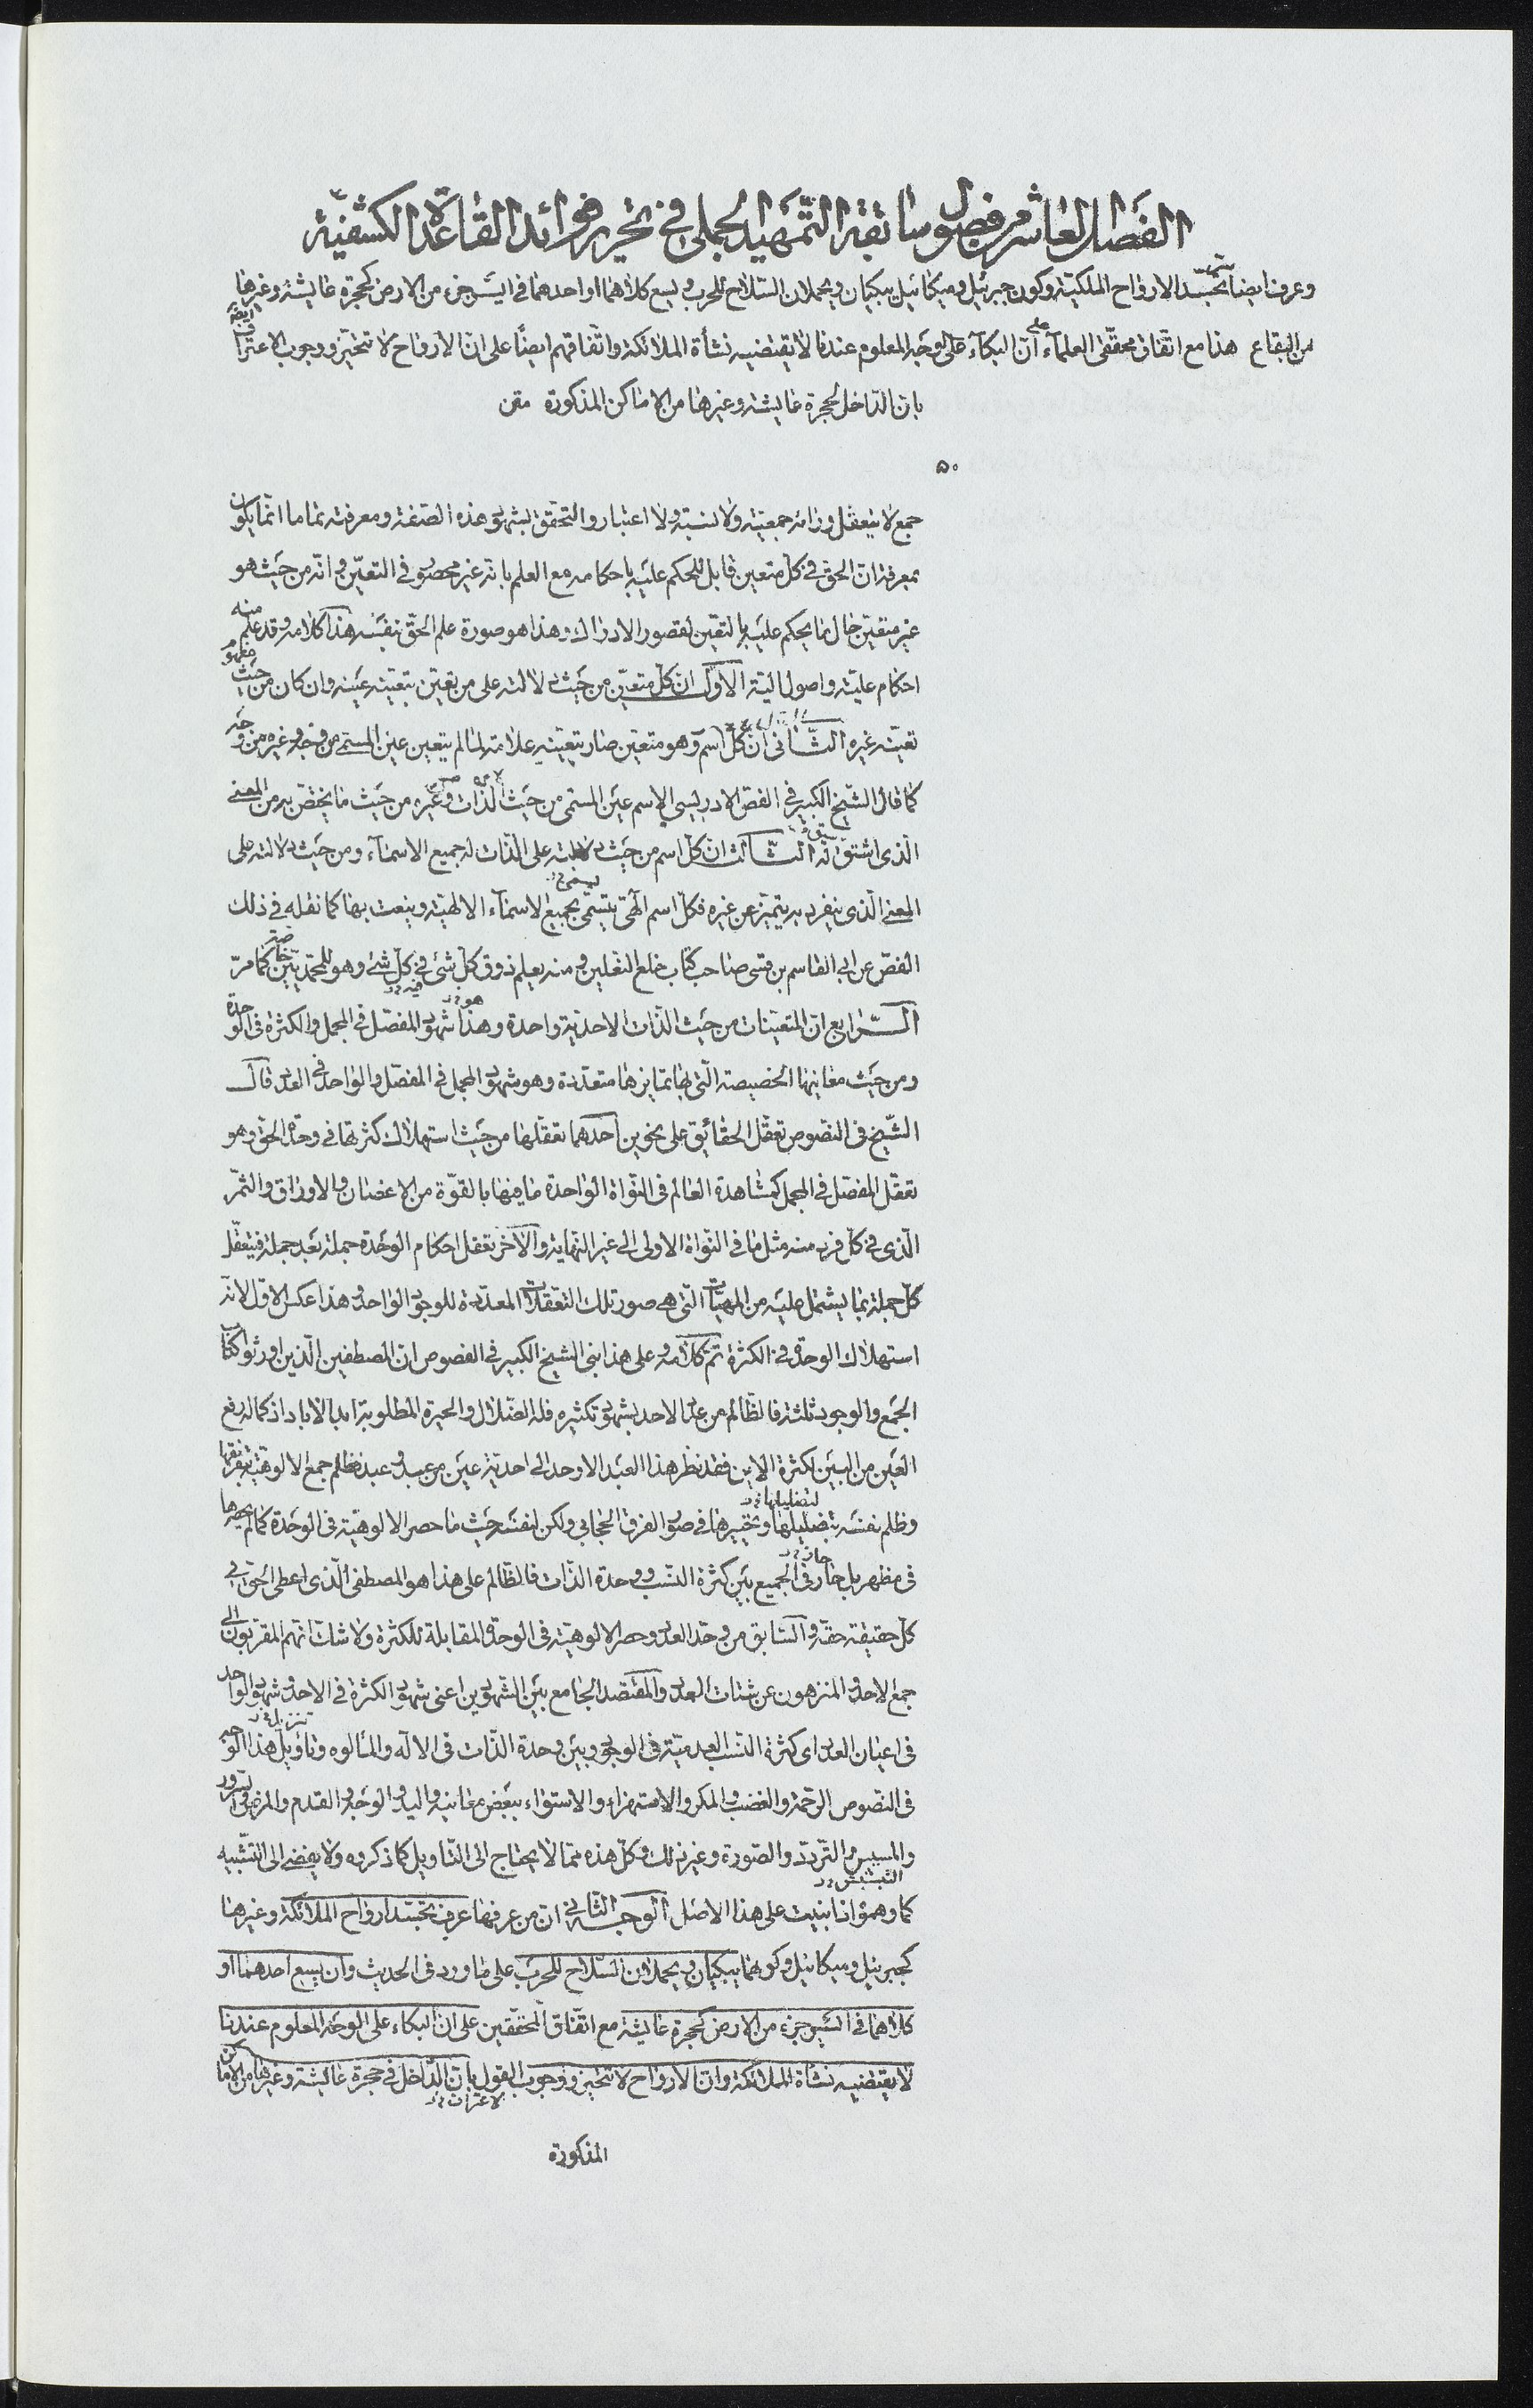 الفصل العاشر من فصول سابقة التمهيد الجملى فى تحرير فوائد القاعدة الكشفيّة
وعرف ايضا تجسّد الارواح الملكيّة وكون جبرئيل وميكائيل يبكيان ويحملان السّلاح للحرب ويسع كلاهما او احدهما فى ايسر جزء من الارض كحجرة عايشة وغيرها
من البقاع هذا مع اتفاق محققى العلمآء على انّ البكآء على الوجه المعلوم عندنا لا يقتضيه نشأة الملائكة واتّفاقهم ايضًا على انّ الارواح لا تتحيّز ووجوب الاعتراف ايضا
بان الدّاخل لحجرة عايشة وغيرها من الاماكن المذكورة
۵۰
جمع لا يتعقل ورائه جمعيّة ولا نسبة ولا اعتبار والتحقق بشهود هذه الصفة ومعرفته تماما انّما يكون
بمعرفة ان الحق فى كلّ متعين قابل للحكم عليه باحكامه مع العلم بانه غير محصور فى التعيّن وانّه من حيث هو
غير متعيّن حال ما يحكم عليه بالتعّين لقصور الادراك وهذا هو صورة علم الحقّ نفسه هذا كلامه وقد علم منه
احكام عليّة واصول الية الاوّل ان كلّ متعيّن من حيث دلالته على من تعين بتعيّنه عينه وان كان من حيث مفهوم
تعيّنه غيره الثّانى ان كلّ اسم وهو متعيّن صار بتعيّنه علامة لما لم يتعين عين المسمى من وجه وغيره من وجه
كما قال الشّيخ الكبير فى الفصّ الادريسى الاسم عين المسمى من حيث الذّات وغيره من حيث ما يختصّ به من المعنى
الّذى اشتقّ له الثّالث انّ كلّ اسم من حيث دلالته على الذّات له جميع الاسمآء ومن حيث دلالته على
المعنى الّذى ينفرد به يتميّز عن غيره فكلّ اسم الٓهى يتسمّى بجميع الاسمآء الالهيّة وينعت بها كما نقله فى ذلك
الفصّ عن ابى القاسم بن قسى صاحب كتاب خلع النعلين ومنه يعلم ذوق كلّ شئ فى كلّ شئ وهو للمحمّديّين خاصّة كما مرّ
الرّابع انّ المتعيّنات من حيث الذّات الاحديّة واحدة وهذا شهود المفصّل فى المجمل والكثرة فى الوحدة
ومن حيث معانيها الخصيصة الّتى بها تمايزها متعدّدة وهو شهود المجمل فى المفصّل والواحد فى العدد قال
الشّيخ فى النصوص تعقّل الحقائق على نحوين احدهما تعقّلها من حيث استهلاك كثرتها فى وحدة الحق وهو
تعقّل المفصّل فى المجمل كمشاهدة العالم فى النّواة الواحدة ما فيها بالقوّة من الاغصان والاوراق والثمر
الّذى فى كلّ فرد منه مثل ما فى النّواة الاولى الى غير النّهاية والاخر تعقل احكام الوحدة جملة بعد جملة فيتعقّل
كلّ جملة بما يشتمل عليه من المهيّات الّتى هى صور تلك التعقّلات المعدّدة للوجود الواحد وهذا عكس الاوّل لانّه
استهلاك الوحدة فى الكثرة تمّ كلامه وعلى هذا بنى الشيخ الكبير فى الفصوص انّ المصطفين الّذين اورثوا كتاب
الجمع والوجود ثلثة فالظالم من عدّد الاحد بشهود تكثيره فله الضّلال والحيرة المطلوبة ابد الاباد اذ كماله رفع
العين من البين لكثرة الاين فقد نظر هذا العبد الاوحد الى احدية عين من عبد وعبد فظلم جمع الالوهيّة بتفرقتها
وظلم نفسه بتضليلها وتحييرها فى صور الفرق الحجابى ولكن لنفسه حيث ما حصر الالوهيّة فى الوحدة كما لم يحصرها
فى مظهر بل حار فى الجميع بين كثرة النسب ووحدة الذّات فالظّالم على هذا هو المصطفى الّذى اعطى الحقّ فى
كلّ حقيقة حقّه والسّابق من وحّد العدد وحصر الالوهيّة فى الوحدة المقابلة للكثرة ولا شك انهم المقربون الى
جمع الاحد والمنزهون عن شتات العدد والمقتصد الجامع بين الشهودين اعنى شهود الكثرة فى الاحد وشهود الواحد
فى اعيان العدد اى كثرة النسب العدميّة فى الوجود وبين وحدة الذّات فى الاله والمألوه وتأويل هذا الوجه
فى النصوص الرحمة والغضب والمكر والاستهزاء والاستواء ببعض معانيه واليد والوجه والقدم والمرض والسرور
والمسيس والتّردّد والصّورة وغير ذلك وكلّ هذه ممّا لا يحتاج الى التّأويل كما ذكروه ولا يفضى الى التّشبيه
كما وهموا اذا بنيت على هذا الاصل الوجه الثّانى ان من عرفها عرف تجسّد ارواح الملائكة وغيرها
كجبرئيل وميكائيل وكونهما يبكيان ويحملان السّلاح للحرب على ما ورد فى الحديث وان يسع احدهما او
كلاهما فى ايسر جزء من الارض كحجرة عايشة مع اتفاق المحققين على ان البكاء على الوجه المعلوم عندنا
لا يقتضيه نشأة الملائكة وان الارواح لا تتحيز ووجوب القول بان الدّاخل فى حجرة عايشة وغيرها من الاماكن
المذكورة